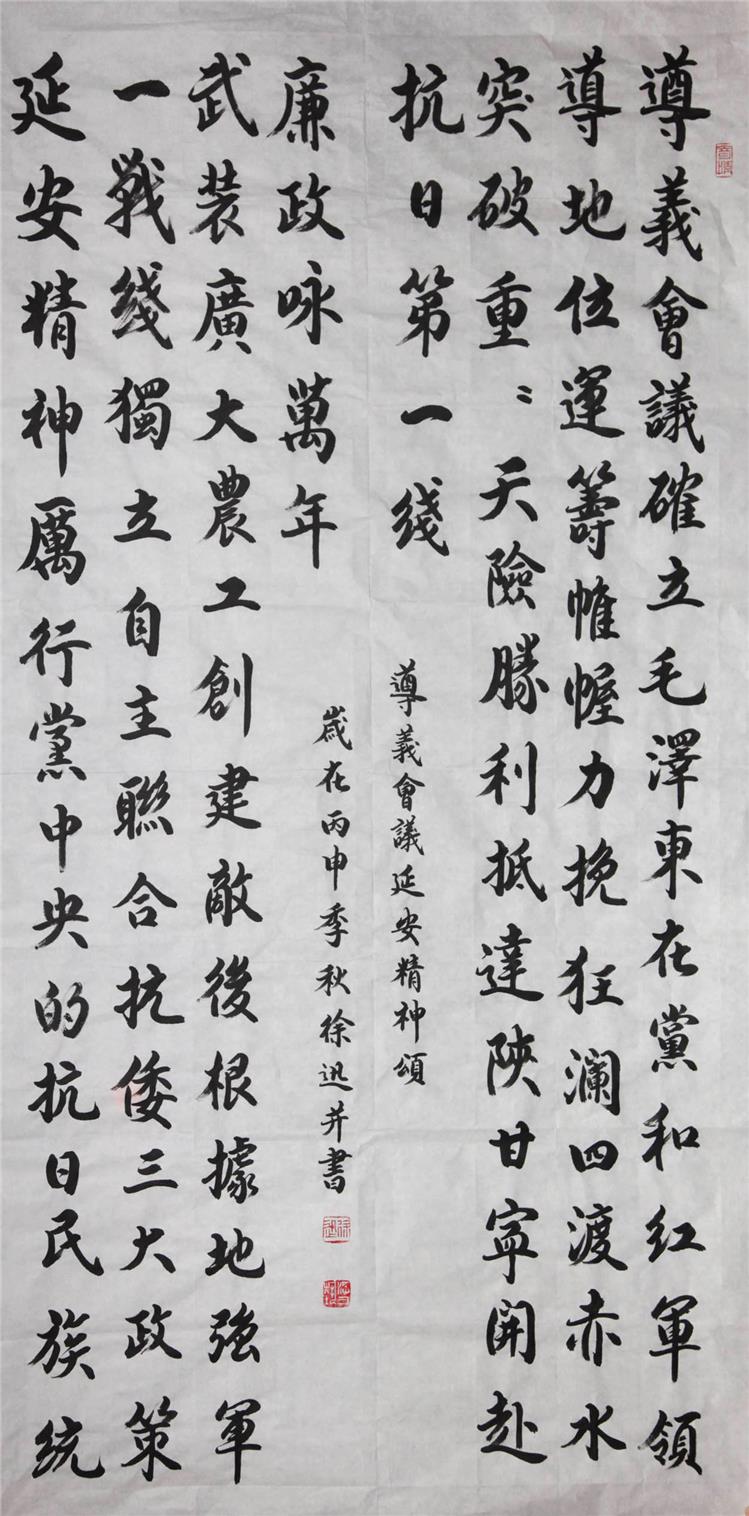 遵義會議確立毛澤東在黨和红軍領
導地位運籌帷幄力挽狂澜四渡赤水
突破重〻天險勝利抵達陝甘寧開赴
抗日第一线
遵義會議延安精神頌
延安精神厲行黨中央的抗日民族统
一戰线獨立自主聯合抗倭三大政策
武装廣大農工創建敵後根據地強軍
廉政咏萬年
歲在丙申季秋徐迅并書